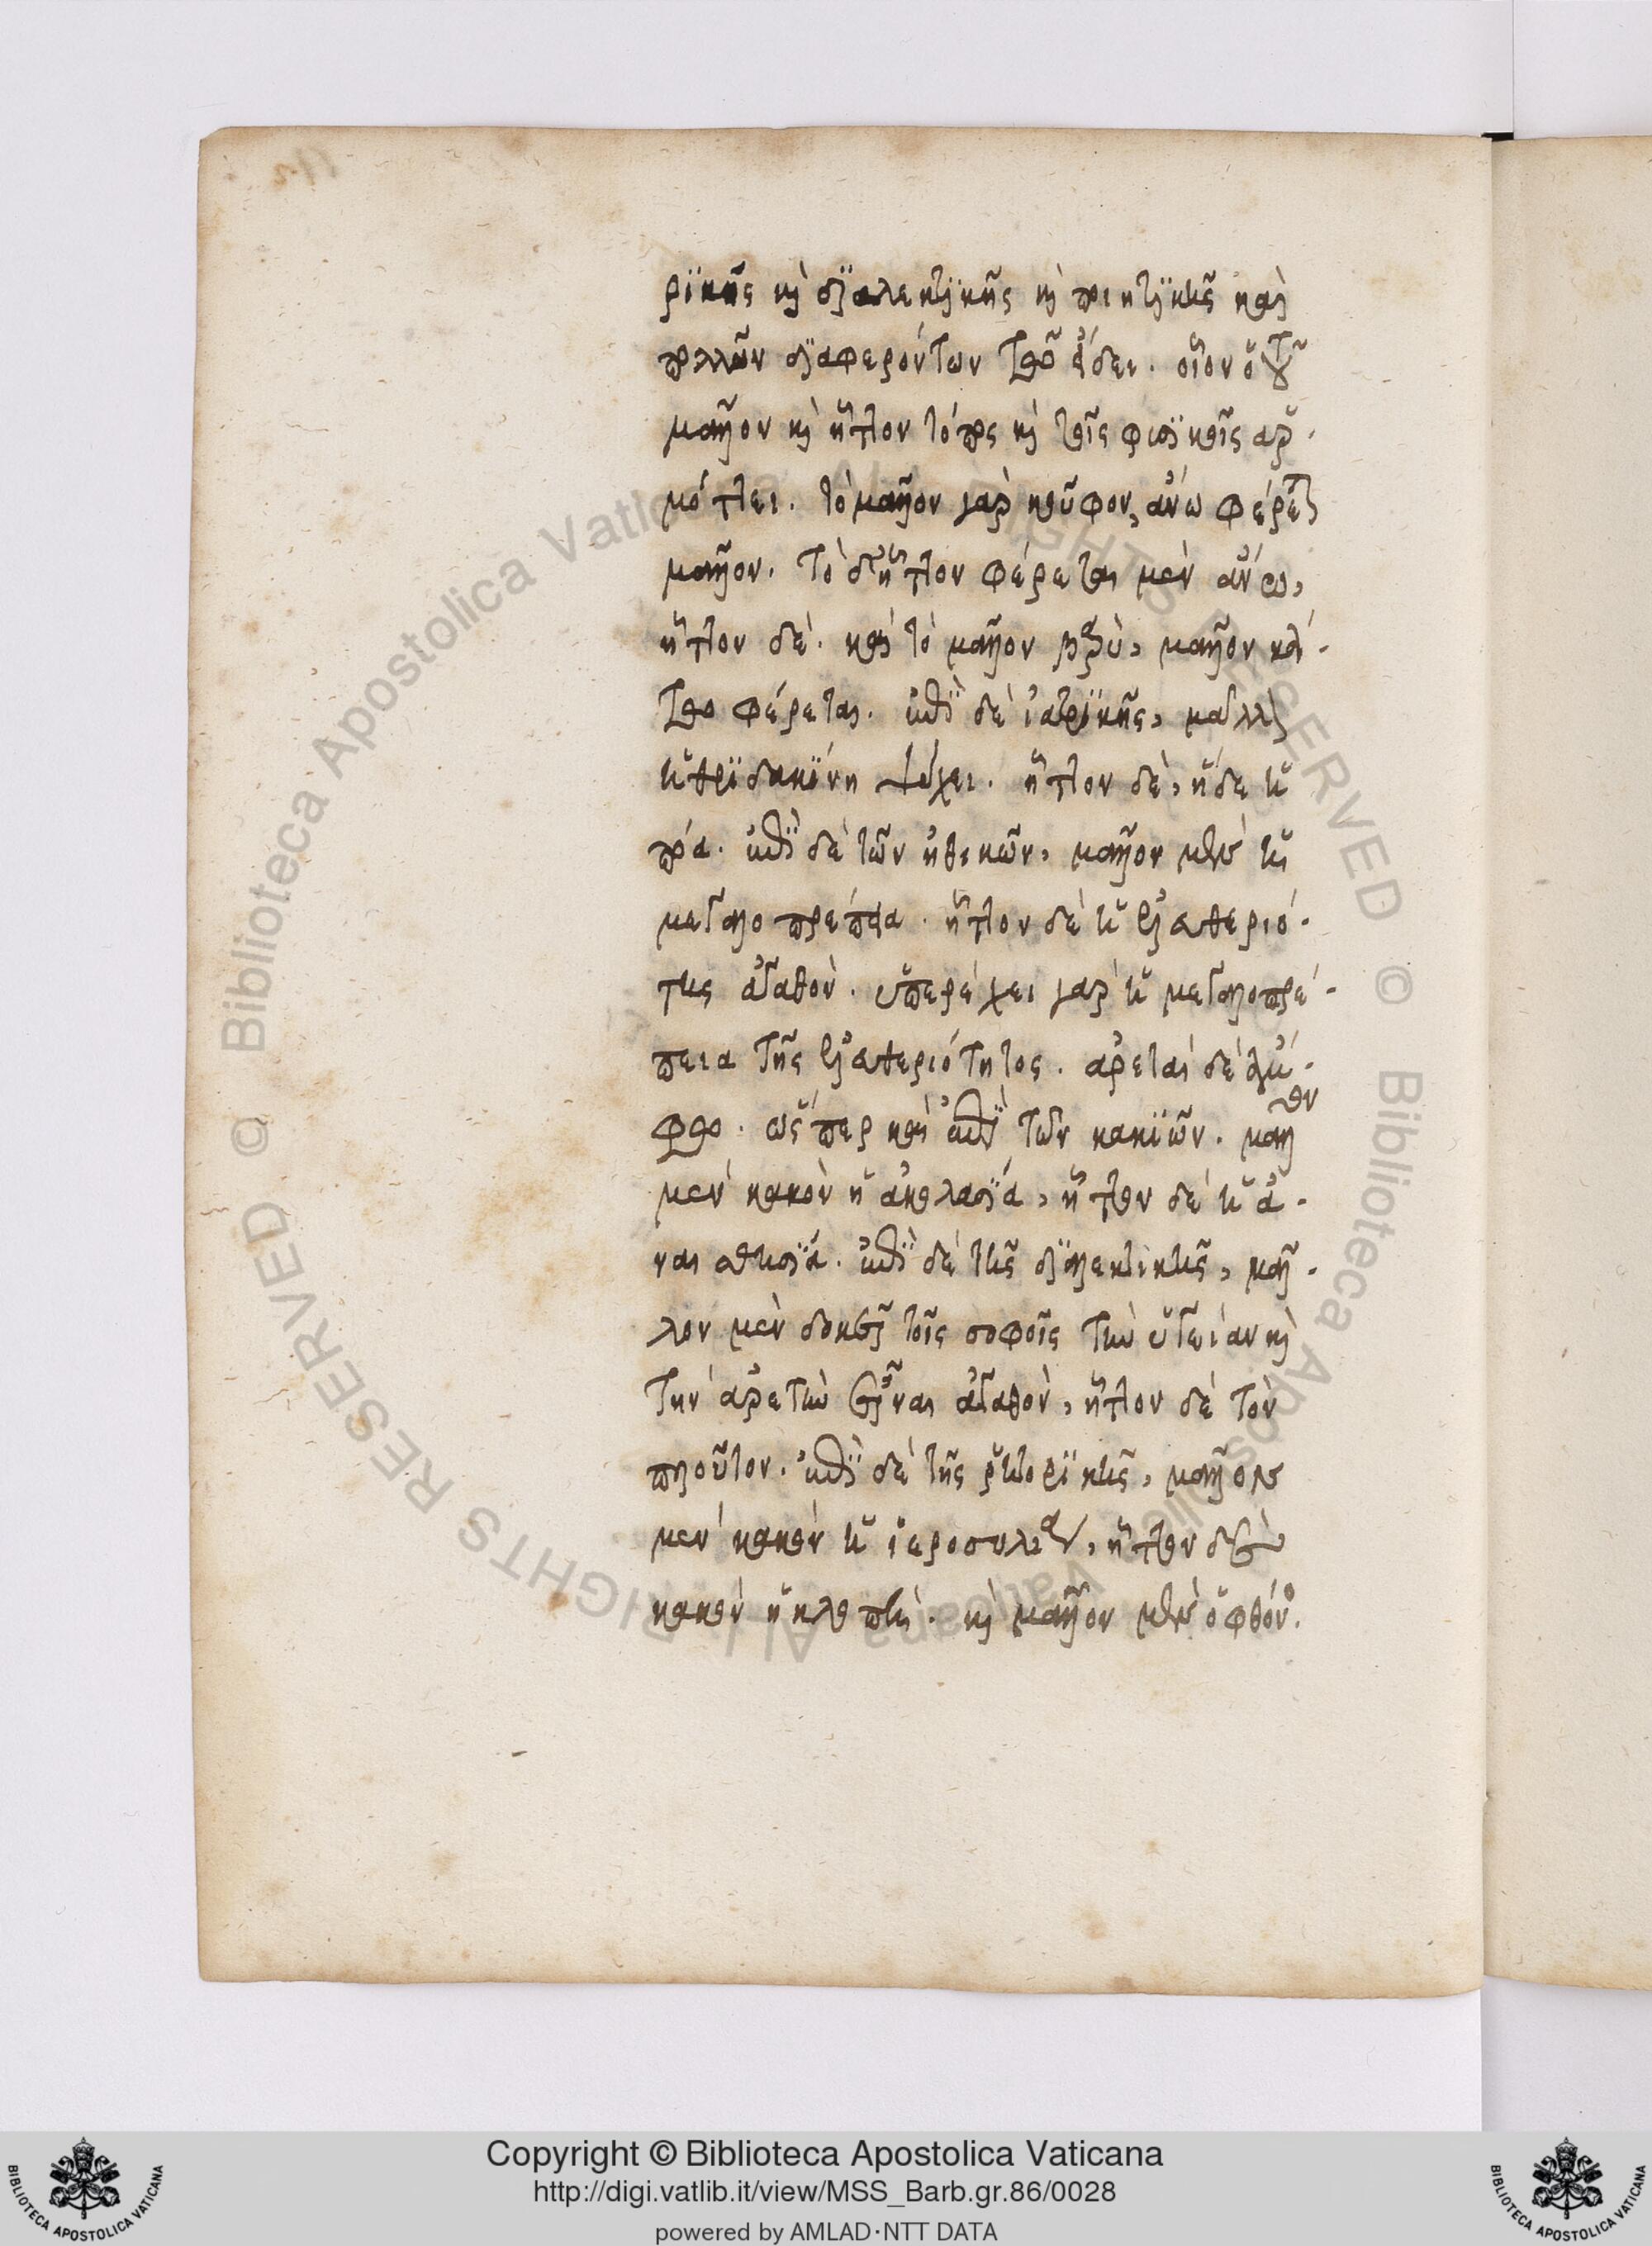 ρϊκῆς κὶ διαλεκτϊκῆς κὶ ποιητϊκῆς καὶ
πολλῶν διαφερόντων τῶ εἴδει. οἷον ὁ τοῦ
μᾶλλον κὶ ἧττον τόπος κὶ τοῖς φυσϊκοῖς ἁρ-
μόττει. τὸ μᾶλλον γὰρ κοῦφον, ἄνω φέρεται
μᾶλλον. τὸ δ' ἧττον φέρεται μὲν ἄνω,
ἧττον δέ. καὶ τὸ μᾶλλον βαρὺ, μᾶλλον κά-
τω φέρεται. ἐπὶ δὲ ἰατρϊκῆς, μᾶλλον
ἡ θριδακίνη ψύχει. ἧττον δὲ, ἥδε ἡ
πόα. ἐπὶ δὲ τῶν ἠθικῶν, μᾶλλον μὲν ἡ
μεγαλοπρέπεια. ἧττον δὲ ἡ ἐλευθεριό-
της ἀγαθὸν. ὑπερέχει γὰρ ἡ μεγαλοπρέ-
πεια τῆς ἐλευθεριότητος. ἀρεταὶ δὲ ἄμ-
φω. ὥσπερ καὶ ἐπὶ τῶν κακϊῶν. μᾶλλον
μὲν κακὸν ἡ ἀκολασϊά, ἧττον δὲ ἡ ἀ-
ναισθησϊά. ἐπὶ δὲ τῆς διαλεκτικῆς, μᾶλ-
λον μὲν δοκεῖ τοῖς σοφοῖς τὴν ὑγείαν κὶ
τὴν ἀρετὴν εἶναι ἀγαθὸν, ἧττον δὲ τὸν
πλοῦτον. ἐπὶ δὲ τῆς ῥητορϊκῆς, μᾶλλον
μὲν κακὸν ἡ ἱεροσυλία, ἧττον δὲ
κακὸν ἡ κλοπὴ. κὶ μᾶλλον μὲν ὁ φθόνος.
Copyright © Biblioteca Apostolica Vaticana
http://digi.vatlib.it/view/MSS_Barb.gr.86/0028
powered by AMLAD·NTT DATA